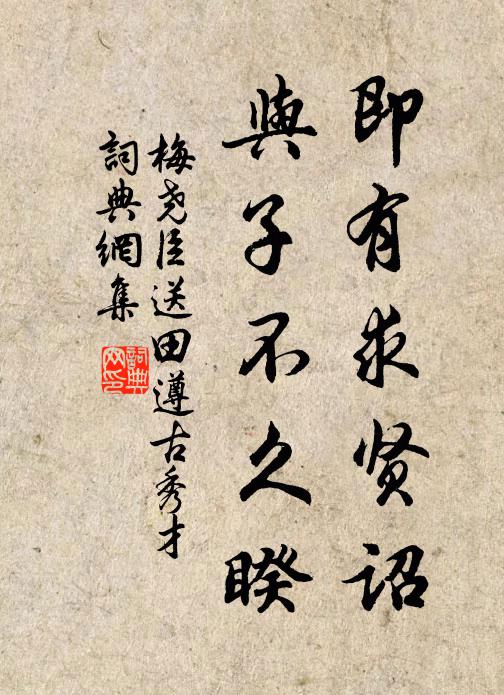 即有求贤詔
與子不久睽
梅尧臣送田遵古秀才
詞典網集
詞典网印